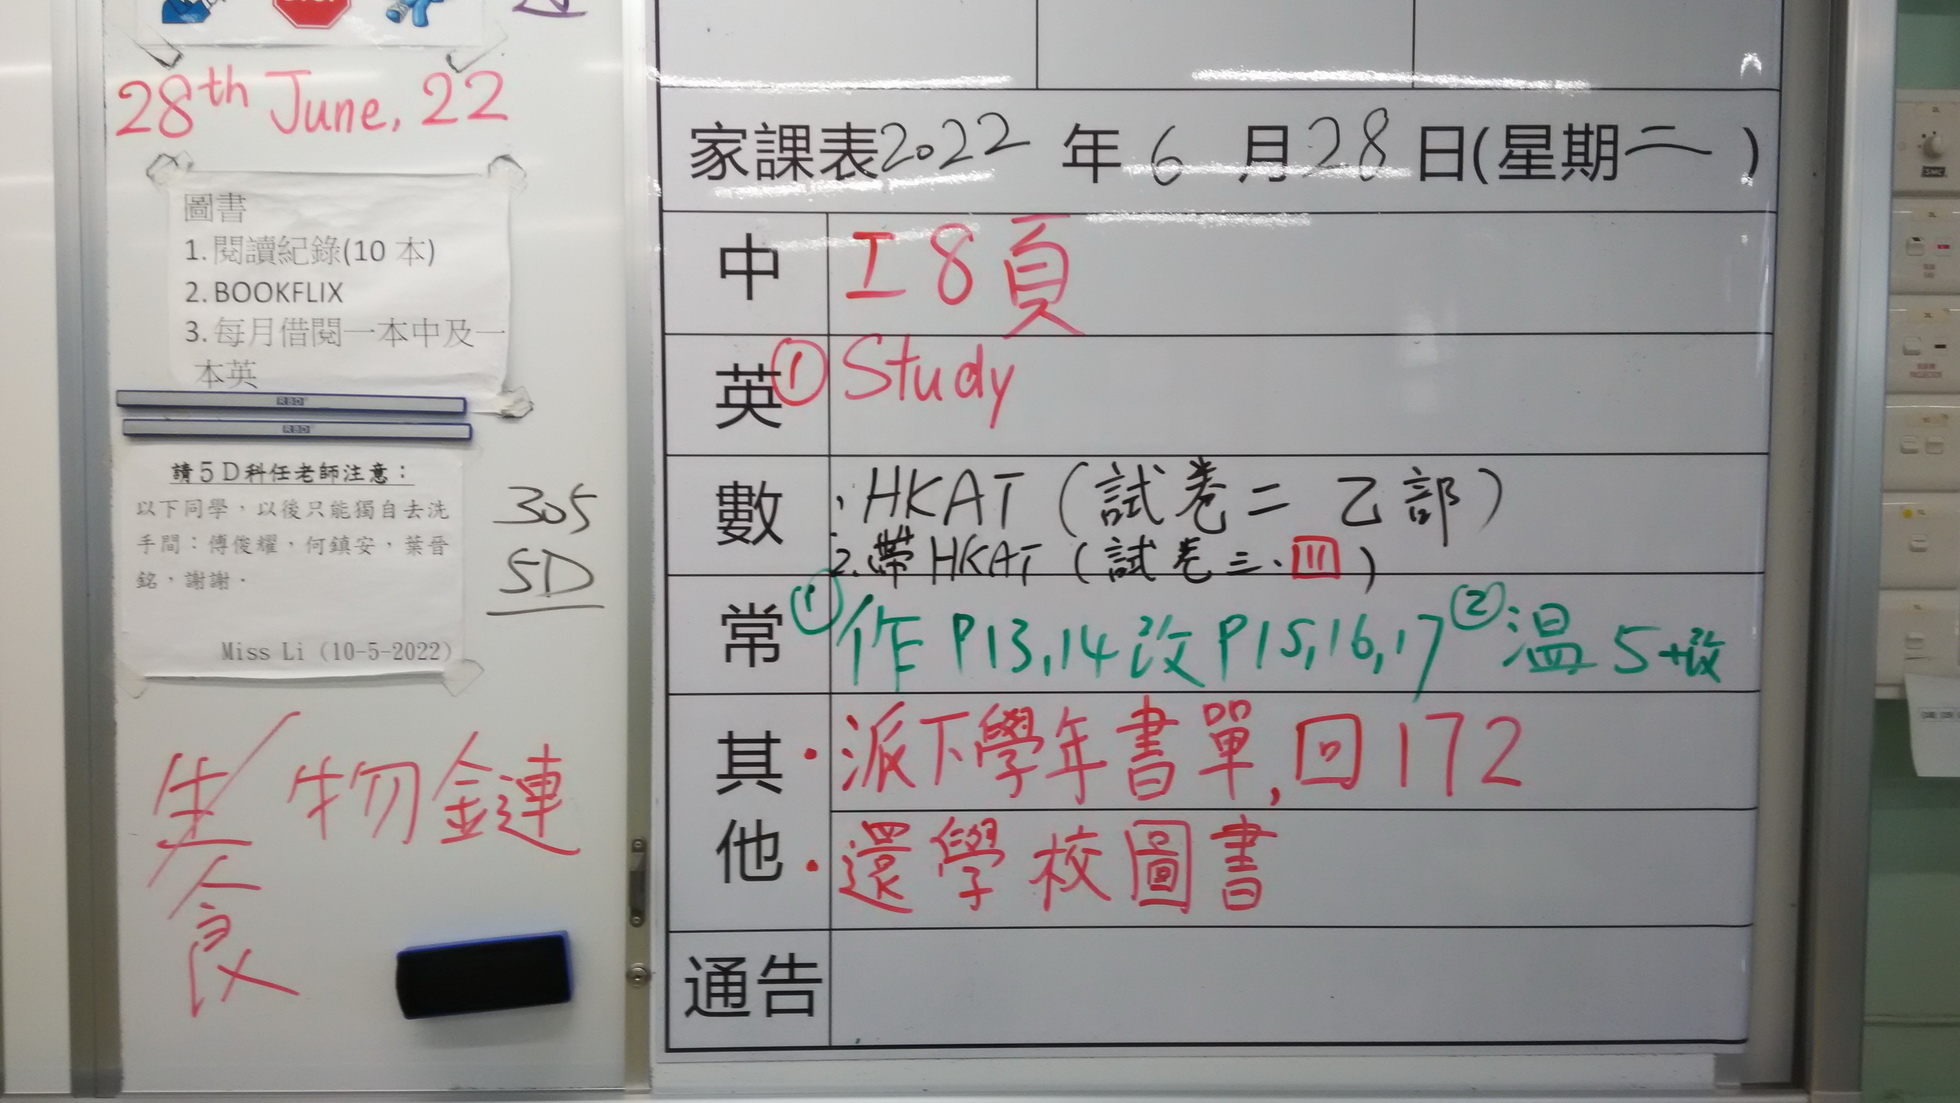 28th June, 22
圖書
1. 閱讀紀錄(10 本)
2. BOOKFLIX
3. 每月借閱一本中及一
本英
請5D科任老師注意：
以下同學，以後只能獨自去洗
手間：傅俊耀，何鎮安，葉晉
銘，謝謝。
Miss Li (10-5-2022)
305
5D
生物鏈
食
家課表2022年6月28日(星期二)
中 工8頁
英 ① Study
數 1. HKAT (試卷二 乙部)
2. 帶 HKAT (試卷三.四)
常 ① 作 P13,14 改 P15,16,17 ② 温 5+改
其他 • 派下學年書單, 回172
• 還學校圖書
通告